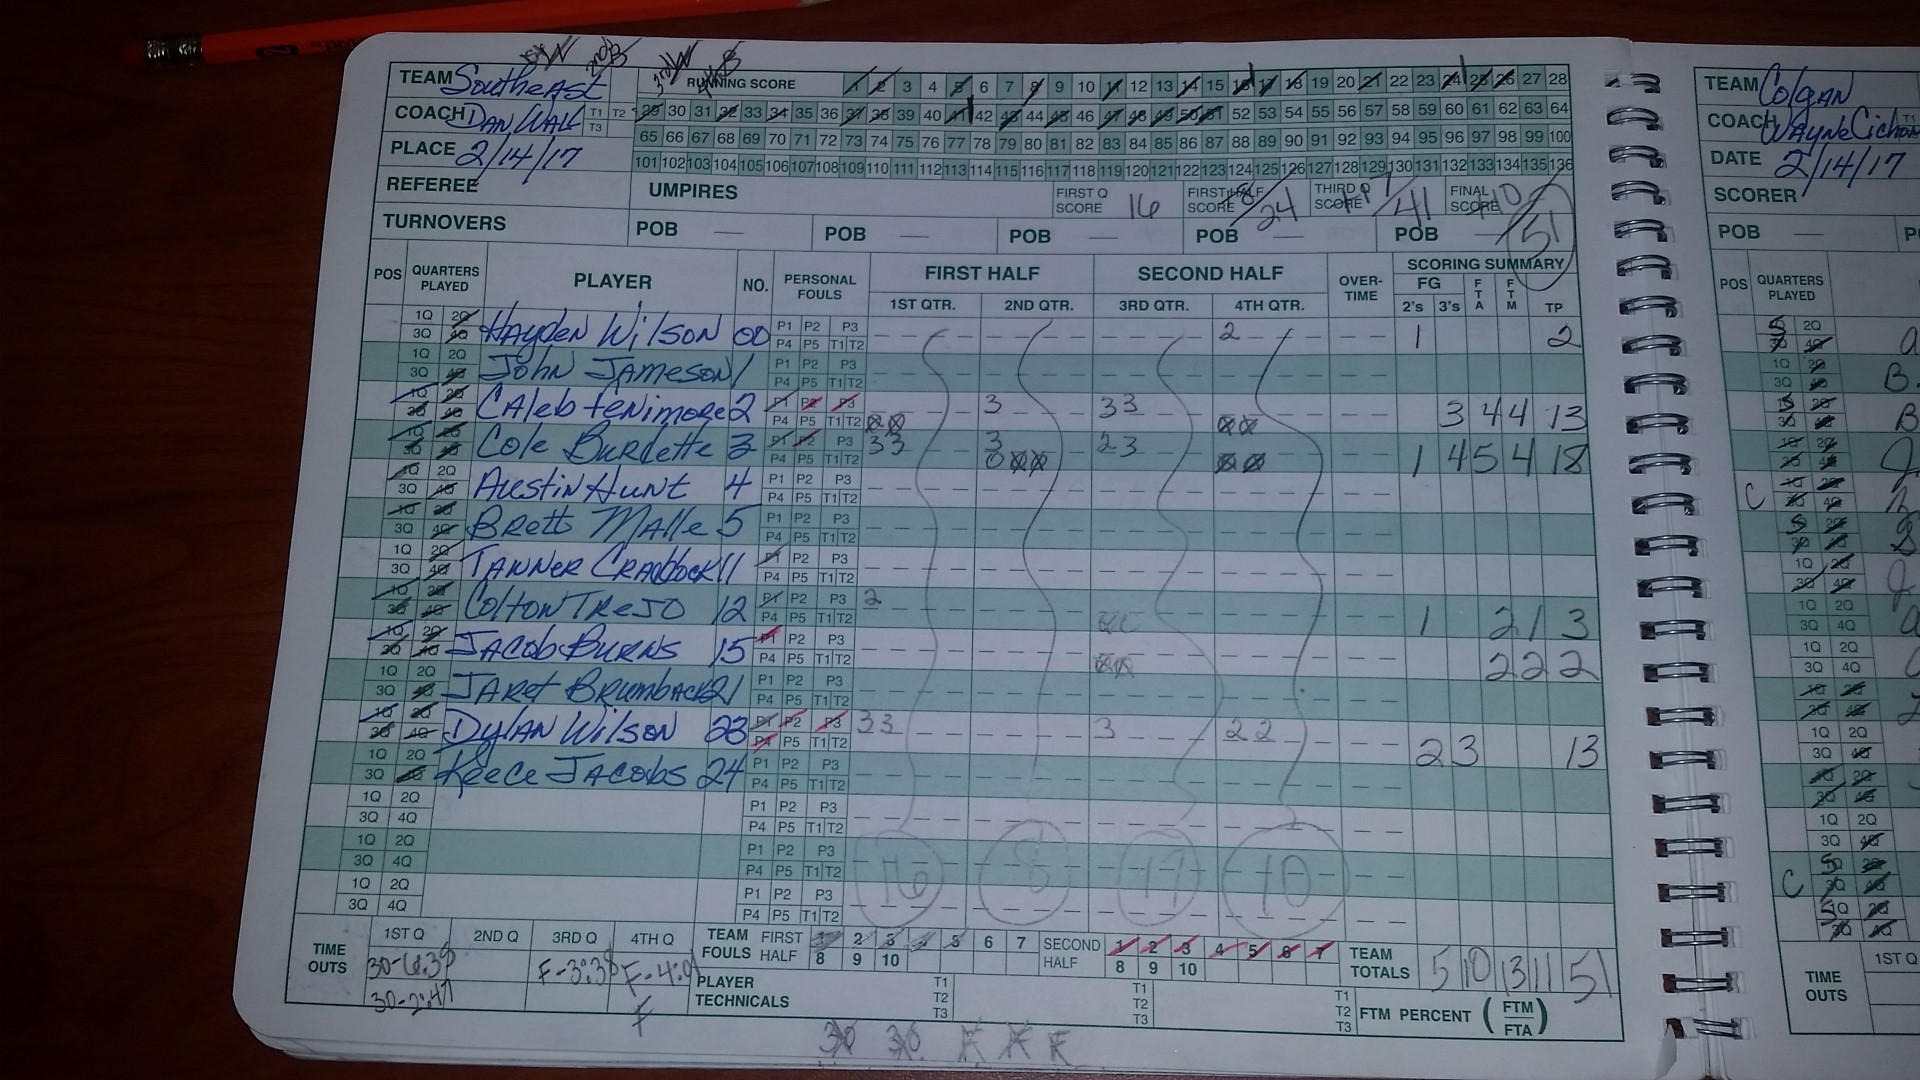 1st W 2nd B 3rd W 4th B
TEAM Southeast RUNNING SCORE 1 2 3 4 5 6 7 8 9 10 11 12 13 14 15 16 17 18 19 20 21 22 23 24 25 26 27 28
COACH DAN WALL T1 T2 T3 29 30 31 32 33 34 35 36 37 38 39 40 41 42 43 44 45 46 47 48 49 50 51 52 53 54 55 56 57 58 59 60 61 62 63 64
65 66 67 68 69 70 71 72 73 74 75 76 77 78 79 80 81 82 83 84 85 86 87 88 89 90 91 92 93 94 95 96 97 98 99 100
PLACE 2/14/17 101 102 103 104 105 106 107 108 109 110 111 112 113 114 115 116 117 118 119 120 121 122 123 124 125 126 127 128 129 130 131 132 133 134 135 136
REFEREE UMPIRES FIRST Q SCORE 16 FIRST HALF SCORE 8/24 THIRD Q SCORE 17/41 FINAL SCORE 10/51
TURNOVERS POB — POB — POB — POB — POB —
POS QUARTERS PLAYED PLAYER NO. PERSONAL FOULS FIRST HALF SECOND HALF OVER-TIME SCORING SUMMARY
1ST QTR. 2ND QTR. 3RD QTR. 4TH QTR. FG 2's 3's FTA FTM TP
1Q 2Q 3Q 4Q Hayden Wilson 00 P1 P2 P3 P4 P5 T1 T2 2 1 2
1Q 2Q 3Q 4Q John Jameson 1 P1 P2 P3 P4 P5 T1 T2
1Q 2Q 3Q 4Q Caleb Fenimore 2 P1 P2 P3 P4 P5 T1 T2 3 33 3 4 4 13
1Q 2Q 3Q 4Q Cole Burdette 3 P1 P2 P3 P4 P5 T1 T2 33 3 23 1 4 5 4 18
1Q 2Q 3Q 4Q Austin Hunt 4 P1 P2 P3 P4 P5 T1 T2
1Q 2Q 3Q 4Q Brett Malle 5 P1 P2 P3 P4 P5 T1 T2
1Q 2Q 3Q 4Q TANNER CRADDOCK 11 P1 P2 P3 P4 P5 T1 T2
1Q 2Q 3Q 4Q Colton Trejo 12 P1 P2 P3 P4 P5 T1 T2 2 1 2 1 3
1Q 2Q 3Q 4Q Jacob Burns 15 P1 P2 P3 P4 P5 T1 T2 2 2 2
1Q 2Q 3Q 4Q Jaret Brumback 21 P1 P2 P3 P4 P5 T1 T2
1Q 2Q 3Q 4Q Dylan Wilson 23 P1 P2 P3 P4 P5 T1 T2 33 3 22 2 3 13
1Q 2Q 3Q 4Q Keece Jacobs 24 P1 P2 P3 P4 P5 T1 T2
1Q 2Q 3Q 4Q P1 P2 P3 P4 P5 T1 T2
1Q 2Q 3Q 4Q P1 P2 P3 P4 P5 T1 T2 16 8 17 10
1Q 2Q 3Q 4Q P1 P2 P3 P4 P5 T1 T2
TIME OUTS 1ST Q 2ND Q 3RD Q 4TH Q TEAM FOULS FIRST HALF 1 2 3 4 5 6 7 8 9 10 SECOND HALF 1 2 3 4 5 6 7 8 9 10 TEAM TOTALS 5 10 13 11 51
30-6:39 F-3:38 F
30-2:47 F
PLAYER TECHNICALS T1 T2 T3 T1 T2 T3 T1 T2 T3 FTM PERCENT (FTM/FTA)
30 30 F F F
TEAM Colgan
COACH Wayne Cichon T1
DATE 2/14/17
SCORER
POB
POS QUARTERS PLAYED
TIME OUTS 1ST Q